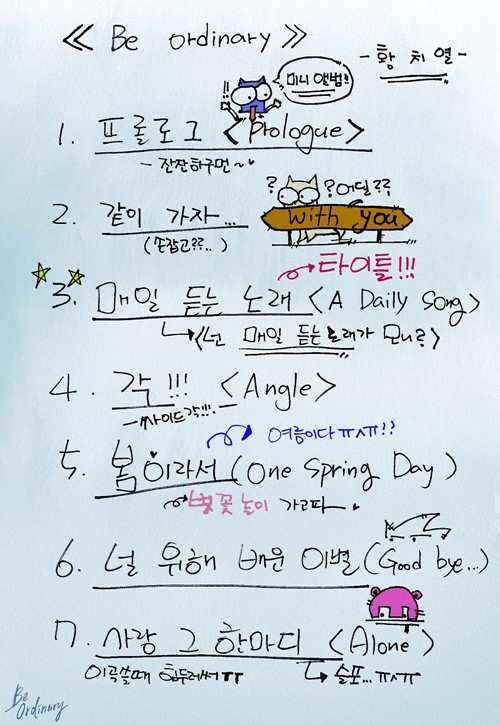 ≪ Be ordinary ≫
- 황 치 열 -
!! 미니 앨범!!
1. 프롤로그 <Prologue>
- 잔잔하구먼~
? ?어딜??
2. 같이 가자... with you
(손잡고??..)
타이틀!!!
3. 매일 듣는 노래 <A Daily Song>
<넌 매일 듣는 노래가 모니?>
4. 각!!! <Angle>
- 싸이드각!!!. -
여름이다ㅠㅅㅠ!?
5. 봄이라서 (One Spring Day)
벚꽃놀이 가고파
6. 널 위해 배운 이별 (Good bye...)
7. 사랑 그 한마디 <Alone>
이곡쓸때 힘드레써ㅠ 슬포...ㅠㅅㅠ
Be ordinary